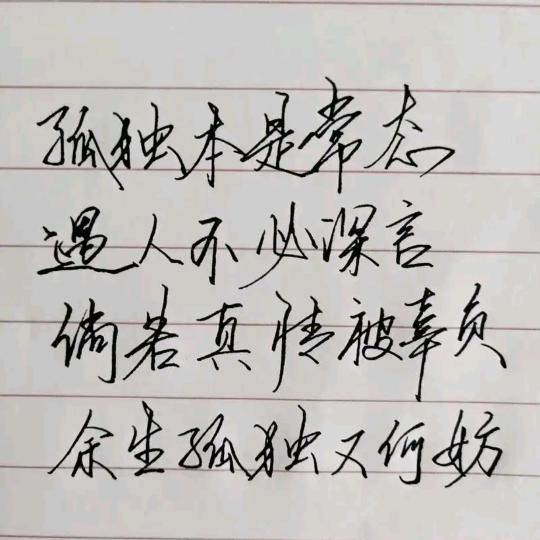 孤独本是常态
遇人不必深言
倘若真情被辜负
余生孤独又何妨